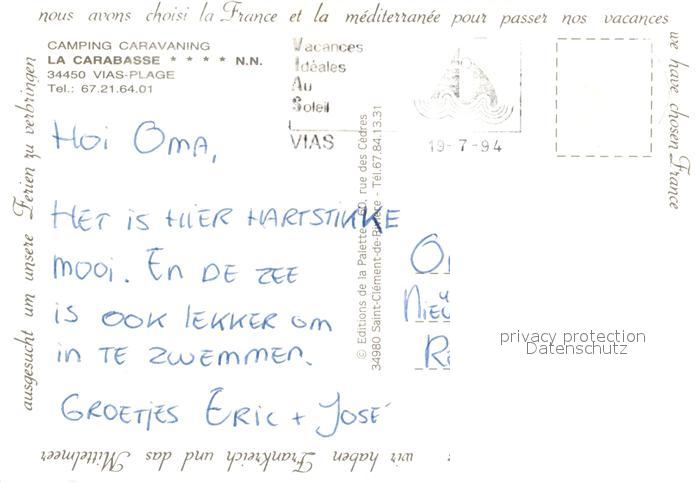 nous avons choisi la France et la méditerranée pour passer nos vacances
we have chosen France
CAMPING CARAVANING
LA CARABASSE * * * * N.N.
34450 VIAS-PLAGE
Tel.: 67.21.64.01
Vacances
Idéales
Au
Soleil
VIAS
19-7-94
Hoi Oma,
Het is hier hartstikke
mooi. En de zee
is ook lekker om
in te zwemmen.
Groetjes Eric + José
© Editions de la Palette - 60, rue des Cèdres
34980 Saint-Clément-de-Rivière - Tél. 67.84.13.31
privacy protection
Datenschutz
wir haben Frankreich und das Mittelmeer
ausgesucht um unsere Ferien zu verbringen